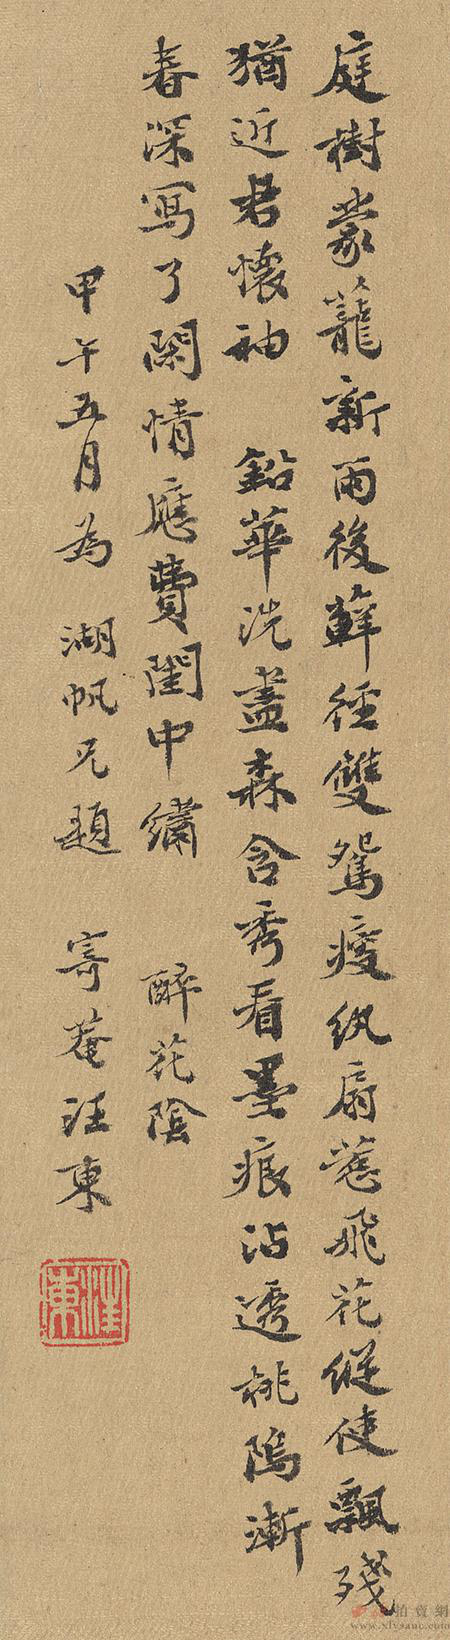 庭樹蒙蘢新雨後蘚徑雙鴛瘦紈扇惹飛花縱使飄殘
猶近君懷袖 鉛華洗盡森含秀看墨痕沾透桃隖漸
春深寫了閑情應費閨中繡 醉花陰
甲午五月為 湖帆兄題 寄菴汪東
汪東
拍賣網
www.xlysauc.com